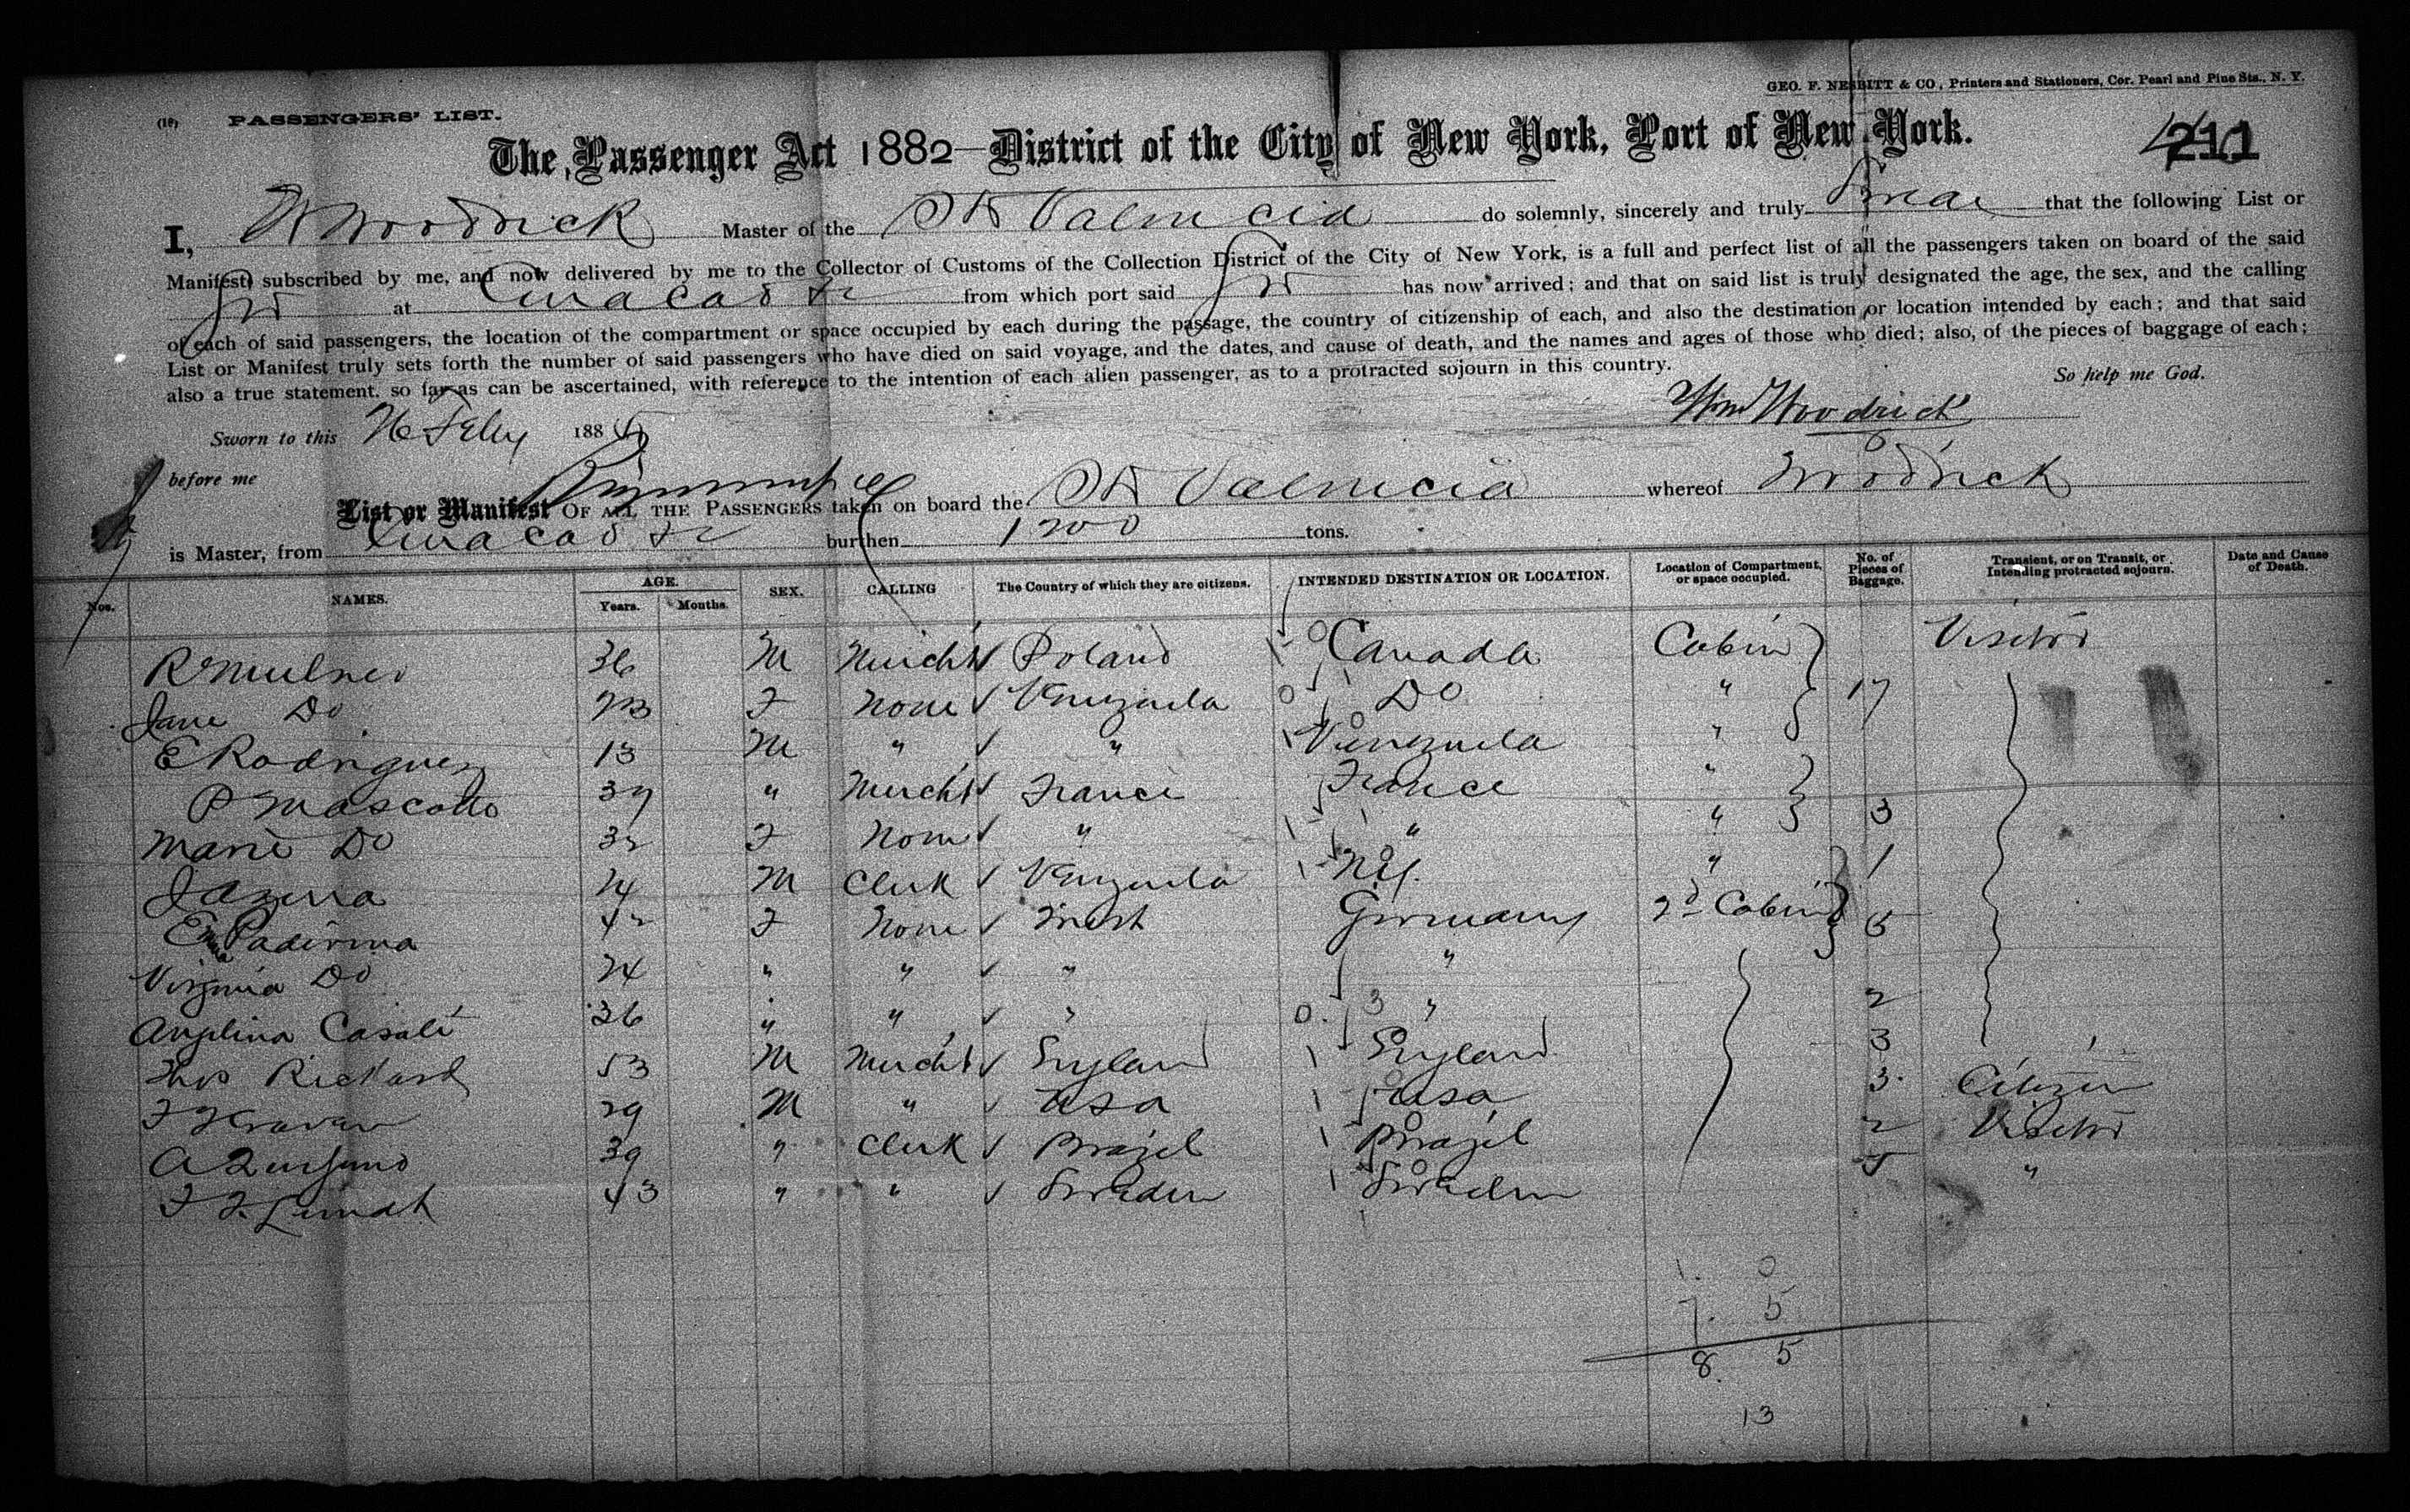 GEO. F. NESBITT & CO., Printers and Stationers, Cor. Pearl and Pine Sts., N. Y.
(16) PASSENGERS' LIST.
The Passenger Act 1882—District of the City of New York, Port of New York.
211
I, W Woodrick Master of the SS Valencia do solemnly, sincerely and truly swear that the following List or
Manifest, subscribed by me, and now delivered by me to the Collector of Customs of the Collection District of the City of New York, is a full and perfect list of all the passengers taken on board of the said
SS at Curacao &c from which port said SS has now arrived; and that on said list is truly designated the age, the sex, and the calling
of each of said passengers, the location of the compartment or space occupied by each during the passage, the country of citizenship of each, and also the destination or location intended by each; and that said
List or Manifest truly sets forth the number of said passengers who have died on said voyage, and the dates, and cause of death, and the names and ages of those who died; also, of the pieces of baggage of each;
also a true statement, so far as can be ascertained, with reference to the intention of each alien passenger, as to a protracted sojourn in this country.
So help me God.
Wm Woodrick
Sworn to this Feby 188
before me
List or Manifest OF ALL THE PASSENGERS taken on board the SS Valencia whereof Woodrick
is Master, from Curacao &c burthen 1200 tons.
Nos. NAMES. AGE. Years. Months. SEX. CALLING The Country of which they are citizens. INTENDED DESTINATION OR LOCATION. Location of Compartment, or space occupied. No. of Pieces of Baggage. Transient, or on Transit, or Intending protracted sojourn. Date and Cause of Death.
36 M Mercht Poland Canada Cabin Visitor
Jane Do 23 F None Venezuela Do " 17
E Rodriguez 13 M " " Venezuela "
P Mascotto 37 " Mercht France France "
Marie Do 32 F None " " " 3
24 M Clerk Venezuela N.Y. " 1
42 F None Germany 2d Cabin 6
Virginia Do 24 " " " "
Angelina Casale 36 " " " " 2
Thos Rickard 53 M Mercht England England 3
29 M " USA USA 3 Citizen
39 " Clerk Brazil Brazil 2 Visitor
43 " " Sweden Sweden "
1. 0
7. 5
8. 5
13